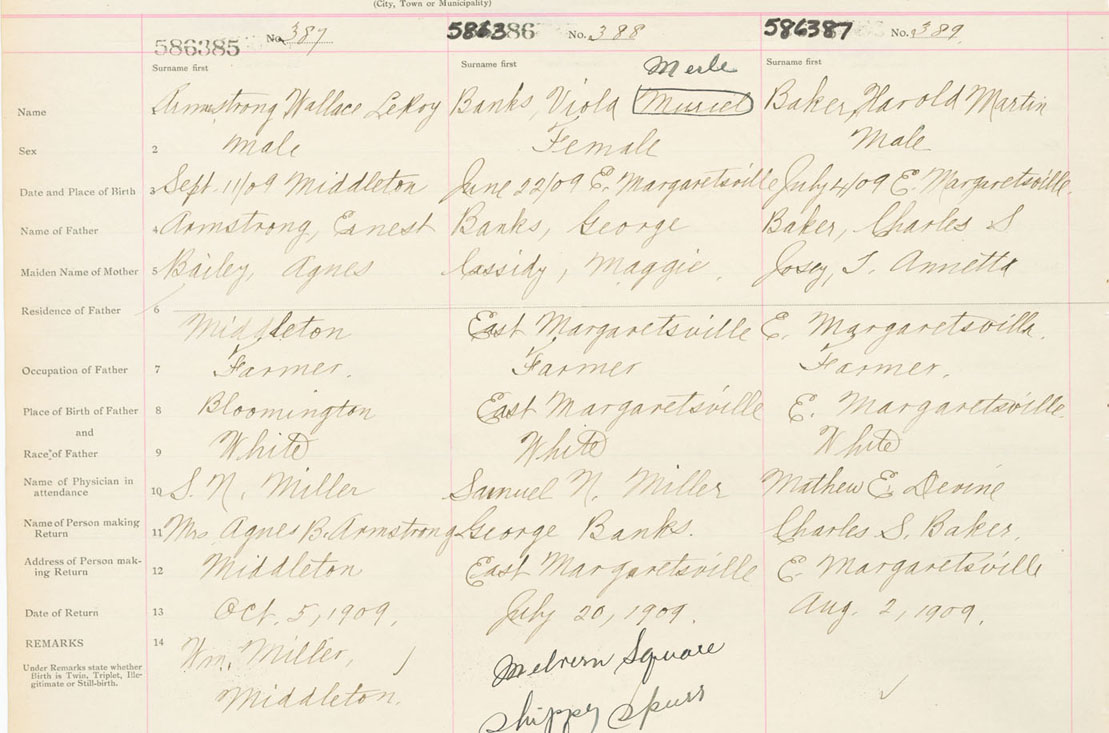 (City, Town or Municipality)
586385 No. 387 586386 No. 388 586387 No. 389
Surname first Surname first Merle Surname first
Name 1 Armstrong Wallace LeRoy Banks, Viola Muriel Baker, Harold Martin
Sex 2 Male Female Male
Date and Place of Birth 3 Sept. 11/09 Middleton June 22/09 E. Margaretsville July 4/09 E. Margaretsville.
Name of Father 4 Armstrong, Earnest Banks, George Baker, Charles S
Maiden Name of Mother 5 Bailey, Agnes Cassidy, Maggie. Josey, T. Annetta
Residence of Father 6 Middleton East Margaretsville E. Margaretsvilla.
Occupation of Father 7 Farmer. Farmer Farmer.
Place of Birth of Father 8 Bloomington East Margaretsville E. Margaretsville.
and
Race of Father 9 White White White
Name of Physician in attendance 10 S. N. Miller Samuel N. Miller Mathew E. Devine
Name of Person making Return 11 Mrs Agnes B. Armstrong George Banks. Charles S. Baker.
Address of Person making Return 12 Middleton East Margaretsville E. Margaretsville
Date of Return 13 Oct. 5, 1909. July 20, 1909. Aug. 2, 1909.
REMARKS 14 Wm. Miller, Melvern Square
Under Remarks state whether Birth is Twin, Triplet, Illegitimate or Still-birth. Middleton. Shippy Spurr